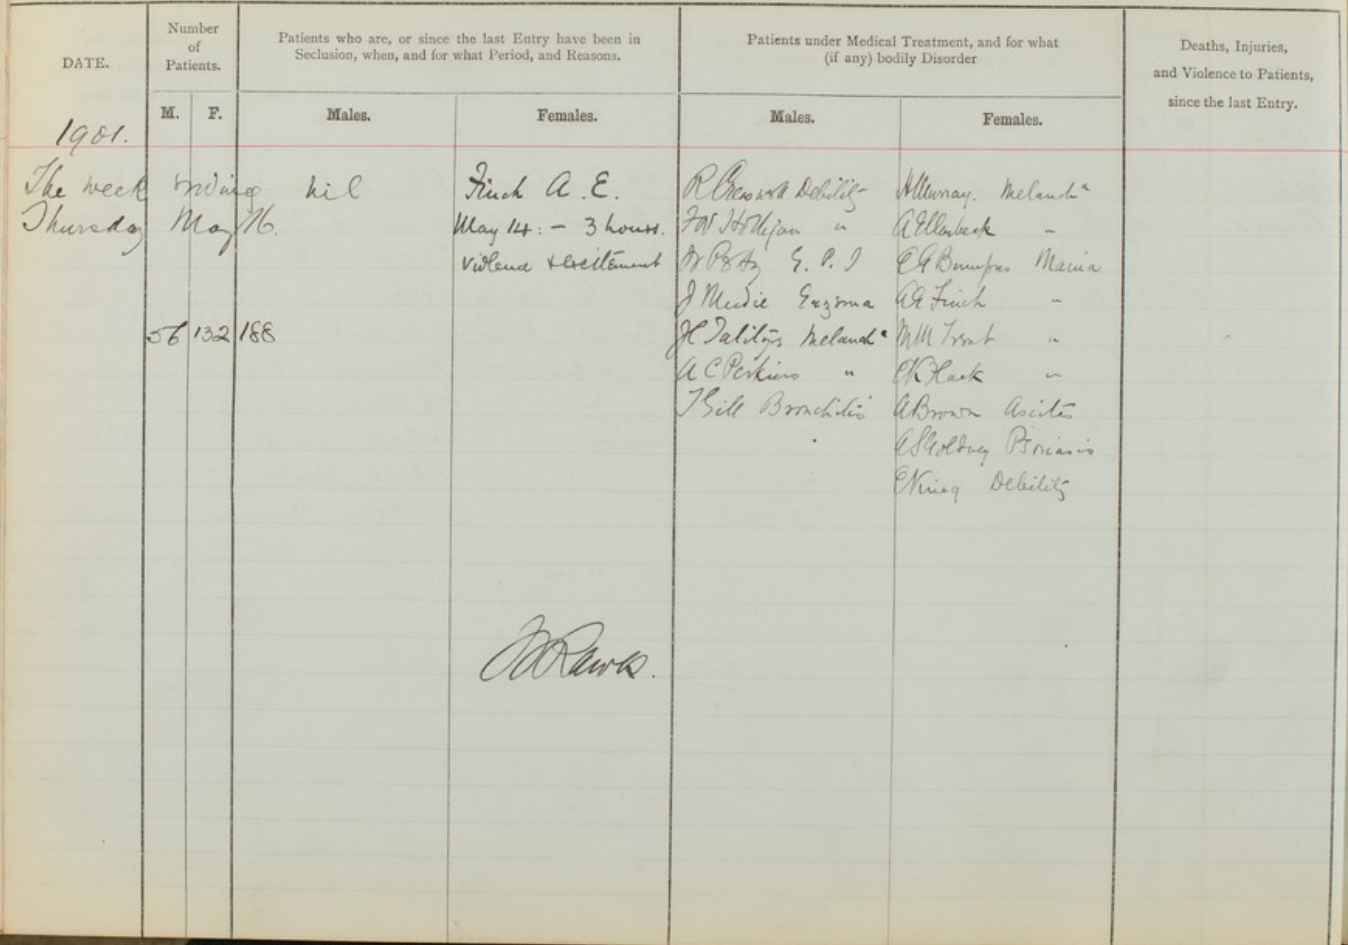 DATE.
Number
of
Patients.
M. F.
Patients who are, or since the last Entry have been in
Seclusion, when, and for what Period, and Reasons.
Males. Females.
Patients under Medical Treatment, and for what
(if any) bodily Disorder
Males. Females.
Deaths, Injuries,
and Violence to Patients,
since the last Entry.
1901.
The week ending
Thursday May 16.
56 132 188
nil
Finch A. E.
May 14: - 3 hours.
Violence & excitement
R Debility
"
G. P. I
J Mudie Eczema
Melanchᵃ
A C Perkins "
T Gill Bronchitis
H Murray. Melanchᵃ
A "
E A Bumpus Mania
A E Finch "
M M "
"
A Brown Ascites
A S Goldney Psoriasis
Debility